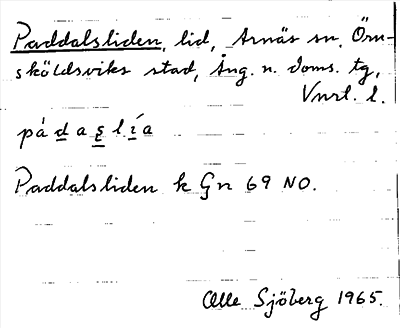 Paddalsliden, lid, Arnäs sn, Örn-
sköldsviks stad, Ång. n. doms. tg,
Vnrl. l.
pàdaslía
Paddalsliden k Gn 69 NO.
Olle Sjöberg 1965.